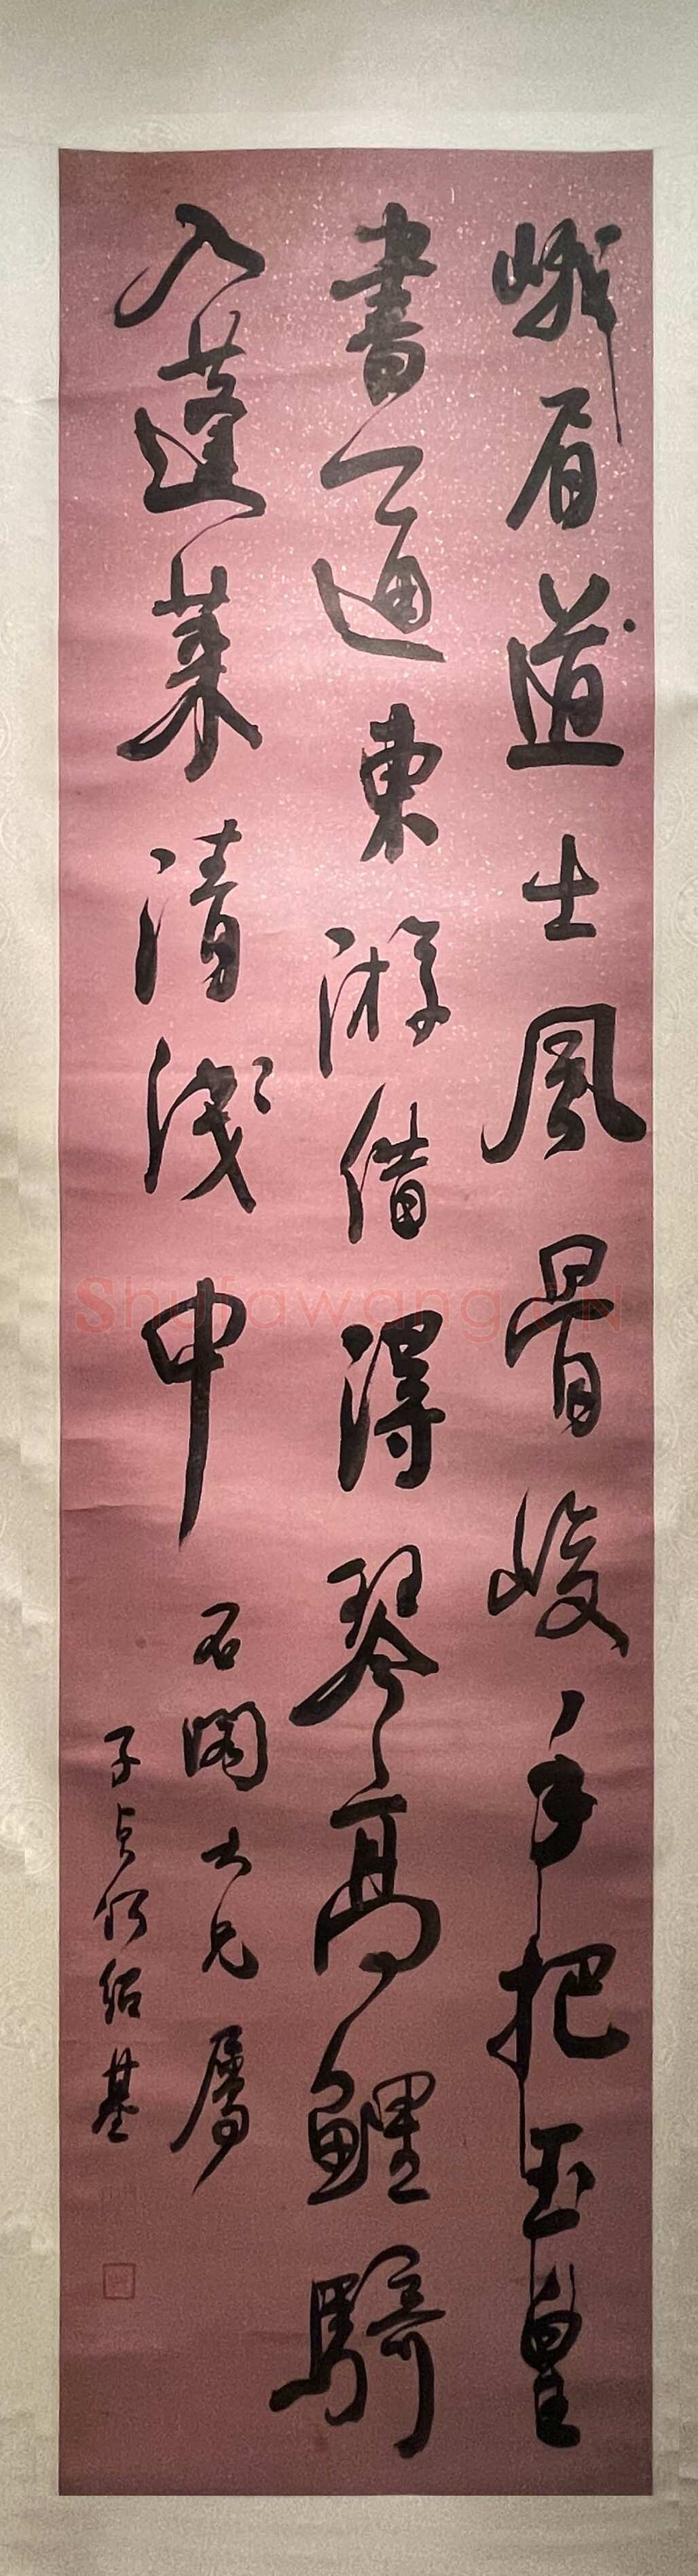 峨眉道士風骨峻手把玉皇
書一通東游借得琴高鯉騎
入蓬萊清淺中
石閣大兄屬
子貞何紹基
Shufawang.CN